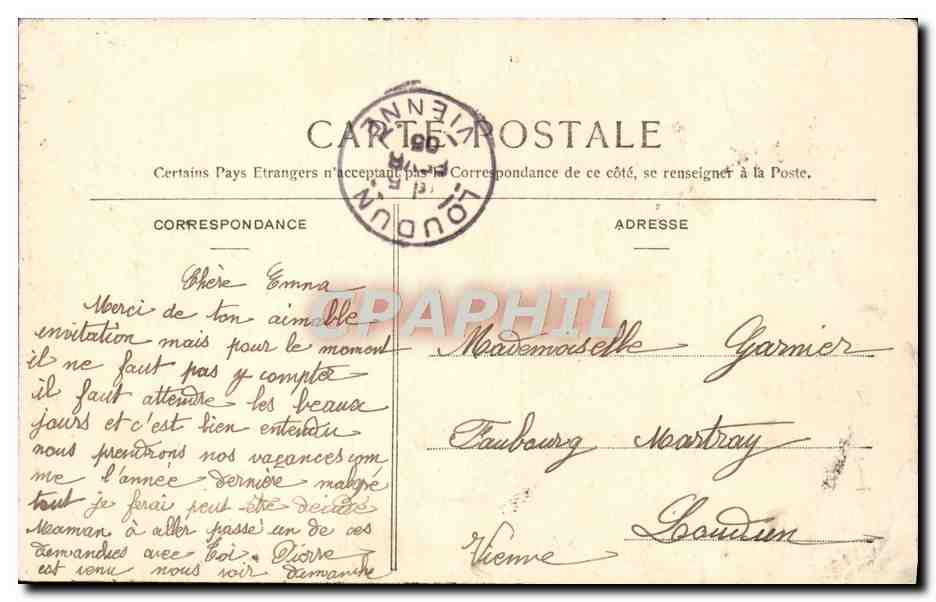 CARTE POSTALE
Certains Pays Etrangers n'acceptant pas la Correspondance de ce côté, se renseigner à la Poste.
LOUDUN
VIENNE
5
05
CORRESPONDANCE
ADRESSE
Chère Emna
Merci de ton aimable
envitation mais pour le moment
il ne faut pas y compter
il faut attendre les beaux
jours et c'est bien entendu
nous prendrons nos vacances com
me l'année dernière malgré
tout je ferai peut être décidé
Maman à aller passé un de ces
dimanches avec toi. Pierre
est venu nous voir dimanche
Mademoiselle Garnier
Faubourg Martray
Loudun
Vienne
CPAPHIL